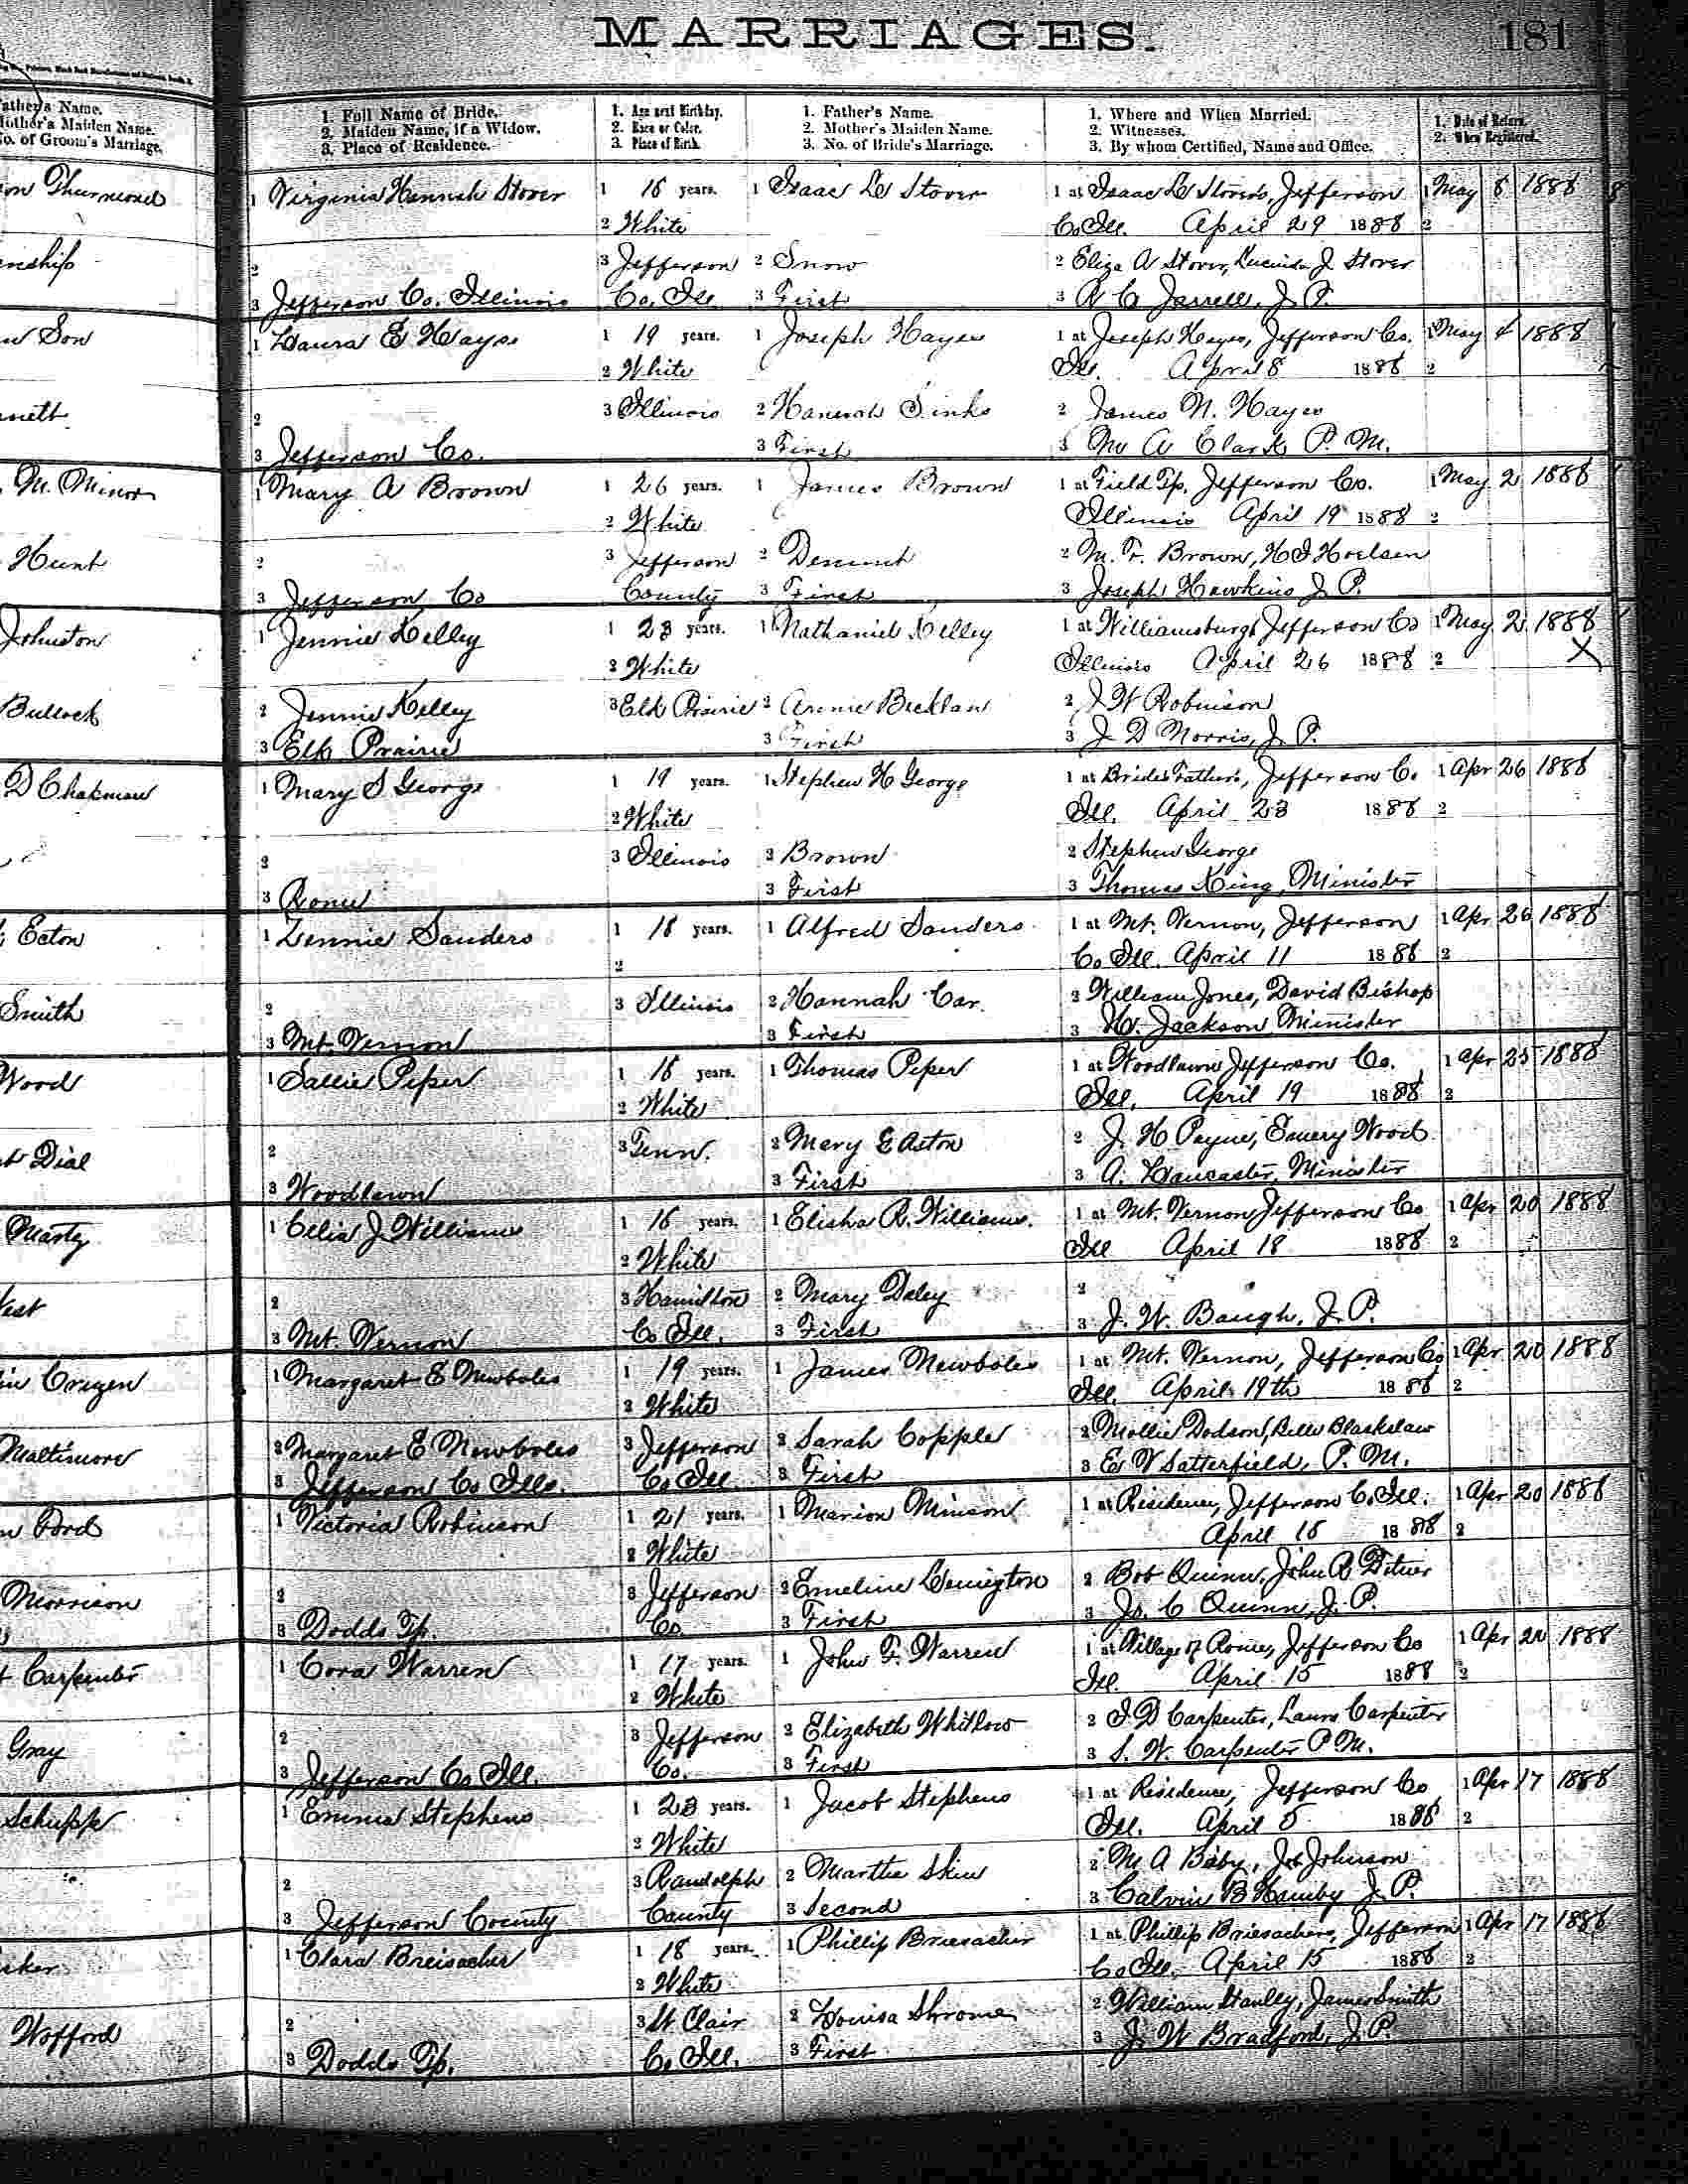 MARRIAGES.
181
Father's Name.
Mother's Maiden Name.
No. of Groom's Marriage.
1. Full Name of Bride.
2. Maiden Name, if a Widow.
3. Place of Residence.
1. Age next Birthday.
2. Race or Color.
3. Place of Birth.
1. Father's Name.
2. Mother's Maiden Name.
3. No. of Bride's Marriage.
1. Where and When Married.
2. Witnesses.
3. By whom Certified, Name and Office.
1. Date of Return.
2. When Registered.
Thurmond
1 Virginia Hannah Stover 1 years. 1 Isaac Stover 1 at Isaac Stover's, Jefferson 1 May 8 1888
2 White Co Ill. April 29 1888 2
2 3 Jefferson 2 Snow 2 Eliza A Stover, Lucinda J Stover
3 Jefferson Co. Illinois Co. Ill 3 First 3 Jarrell, J. P.
Son
1 Laura E Hayse 1 19 years. 1 Joseph Hayes 1 at Joseph Hayes, Jefferson Co. 1 May 4 1888
2 White Ill. April 8 1888 2
2 3 Illinois 2 Hannah Sinks 2 James N. Hayes
3 Jefferson Co. 3 First 3 Clark P. M.
M. Minor
1 Mary A Brown 1 26 years. 1 James Brown 1 at Field Tp. Jefferson Co. 1 May 2 1888
2 White Illinois April 19 1888 2
Hunt
2 3 Jefferson 2 2 M. F. Brown,
3 Jefferson Co County 3 First 3 Joseph Hawkins J. P.
Johnston
1 Jennie Kelley 1 23 years. 1 Nathaniel Kelley 1 at Williamsburg Jefferson Co 1 May 2 1888
2 White Illinois April 26 1888 2 X
Bullock
2 Jennie Kelley 3 Elk Prairie 2 Annie 2 J W Robinson
3 Elk Prairie 3 First 3 J D Morris, J. P.
D Chapman
1 Mary S George 1 19 years. 1 Stephen H George 1 at Brides Father's, Jefferson Co 1 Apr 26 1888
2 White Ill. April 23 1888 2
2 3 Illinois 2 Brown 2 Stephen George
3 Rome 3 First 3 Thomas King, Minister
Eaton
1 Zennie Sanders 1 18 years. 1 Alfred Sanders 1 at Mt. Vernon, Jefferson 1 Apr 26 1888
2 Co Ill. April 11 1888 2
Smith
2 3 Illinois 2 Hannah Car 2 William Jones, David Bishop
3 Mt. Vernon 3 First 3 Jackson Minister
Wood
1 Sallie Piper 1 18 years. 1 Thomas Piper 1 at Woodlawn Jefferson Co. 1 Apr 25 1888
2 White Ill. April 19 1888 2
Dial
2 3 Tenn. 2 Mary Eaton 2 J. H Payne, Emery Wood
3 Woodlawn 3 First 3 A. Lancaster, Minister
Marty
1 Celia J. Williams 1 16 years. 1 Elisha R. Williams. 1 at Mt. Vernon Jefferson Co 1 Apr 20 1888
2 White Ill April 18 1888 2
2 3 Hamilton 2 Mary Daley 2
3 Mt. Vernon Co Ill. 3 First 3 J. W. Baugh, J. P.
1 Margaret E Newboles 1 19 years. 1 James Newboles 1 at Mt. Vernon, Jefferson Co 1 Apr 20 1888
2 White Ill. April 19th 1888 2
2 Margaret E Newboles 3 Jefferson 2 Sarah Copple 2 Mollie Dodson, Belle Blackslaw
3 Jefferson Co Ills. Co Ill 3 First 3 E W Satterfield, P. M.
Ford
1 Victoria Robinson 1 21 years. 1 Marion Minson 1 at Residence, Jefferson Co. Ill. 1 Apr 20 1888
2 White April 18 1888 2
Morrison
2 3 Jefferson 2 Emeline 2 Bob Quinn, John R
3 Dodds Tp. Co. 3 First 3 Quinn, J. P.
Carpenter
1 Cora Warren 1 17 years. 1 John F. Warren 1 at Village of Rome, Jefferson Co 1 Apr 20 1888
2 White Ill. April 15 1888 2
Gray
2 3 Jefferson 2 Elizabeth Whitlow 2 Carpenter, Laura Carpenter
3 Jefferson Co Ill. Co. 3 First 3 S. W. Carpenter P. M.
Schupp
1 Emma Stephens 1 23 years. 1 Jacob Stephens 1 at Residence, Jefferson Co 1 Apr 17 1888
2 White Ill. April 5 1888 2
2 3 Randolph 2 Martha Skiu 2 M A Baby, Johnson
3 Jefferson County County 3 Second 3 Calvin B Hamby J. P.
1 Clara Breisacher 1 18 years. 1 Phillip Briesacher 1 at Phillip Briesachers, Jefferson 1 Apr 17 1888
2 White Co Ill. April 15 1888 2
Wofford
2 3 St Clair 2 Louisa Shrome 2 William Stanley, James Smith
3 Dodds Tp. Co Ill. 3 First 3 J. W Bradford, J. P.